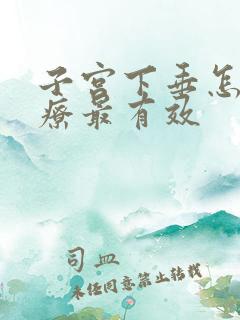 子宫下垂怎
疗最有效
司血
未经同意禁止转载